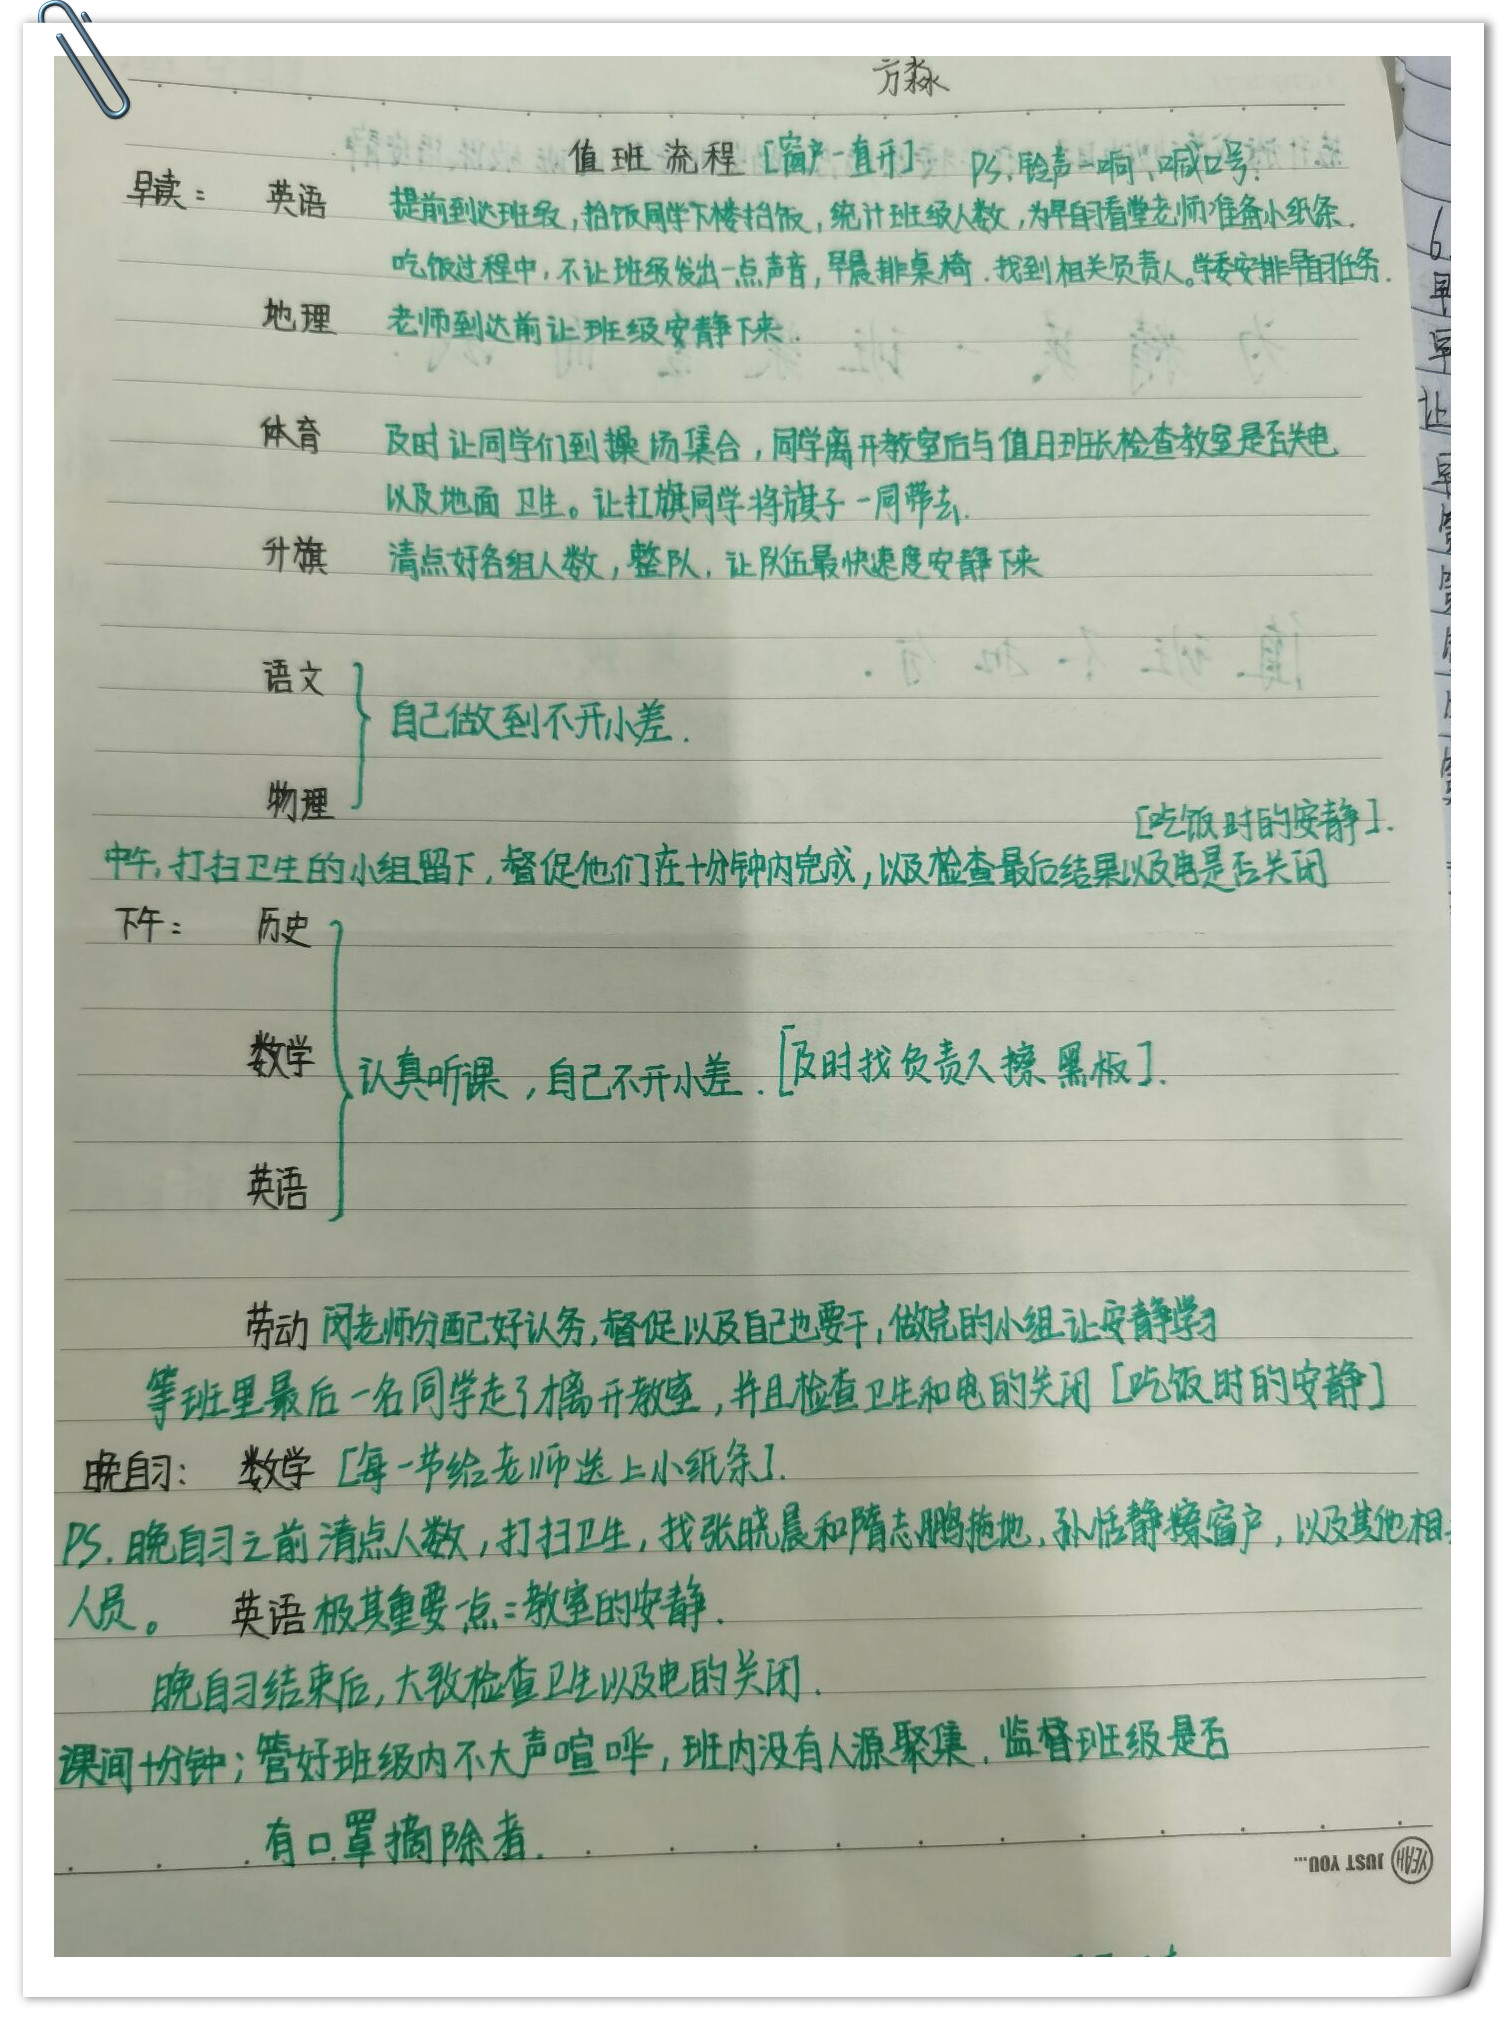 方淼
值班流程 [窗户一直开] PS.铃声一响,喊口号.
早读: 英语 提前到达班级,抬饭同学下楼抬饭,统计班级人数,为早自习看堂老师准备小纸条.
吃饭过程中,不让班级发出一点声音,早晨排桌椅.找到相关负责人。学委安排早自习任务.
地理 老师到达前让班级安静下来.
体育 及时让同学们到操场集合,同学离开教室后与值日班长检查教室是否关电
以及地面卫生。让扛旗同学将旗子一同带去.
升旗 清点好各组人数,整队,让队伍最快速度安静下来
语文
自己做到不开小差.
物理
[吃饭时的安静].
中午,打扫卫生的小组留下,督促他们在十分钟内完成,以及检查最后结果以及电是否关闭
下午: 历史
数学 认真听课,自己不开小差.[及时找负责人擦黑板].
英语
劳动 闵老师分配好认务,督促以及自己也要干,做完的小组让安静学习
等班里最后一名同学走了才离开教室,并且检查卫生和电的关闭[吃饭时的安静]
晚自习: 数学 [每一节给老师送上小纸条].
PS.晚自习之前清点人数,打扫卫生,找张晓晨和隋志鹏拖地,孙恬静擦窗户,以及其他相
人员。 英语 极其重要一点:教室的安静.
晚自习结束后,大致检查卫生以及电的关闭.
课间十分钟;管好班级内不大声喧哗,班内没有人源聚集.监督班级是否
有口罩摘除者.
YEAH JUST YOU...